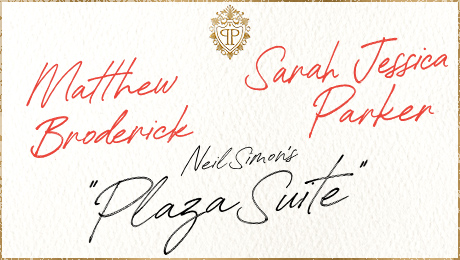 PP
Matthew
Broderick
Sarah Jessica
Parker
Neil Simon's
"Plaza Suite"